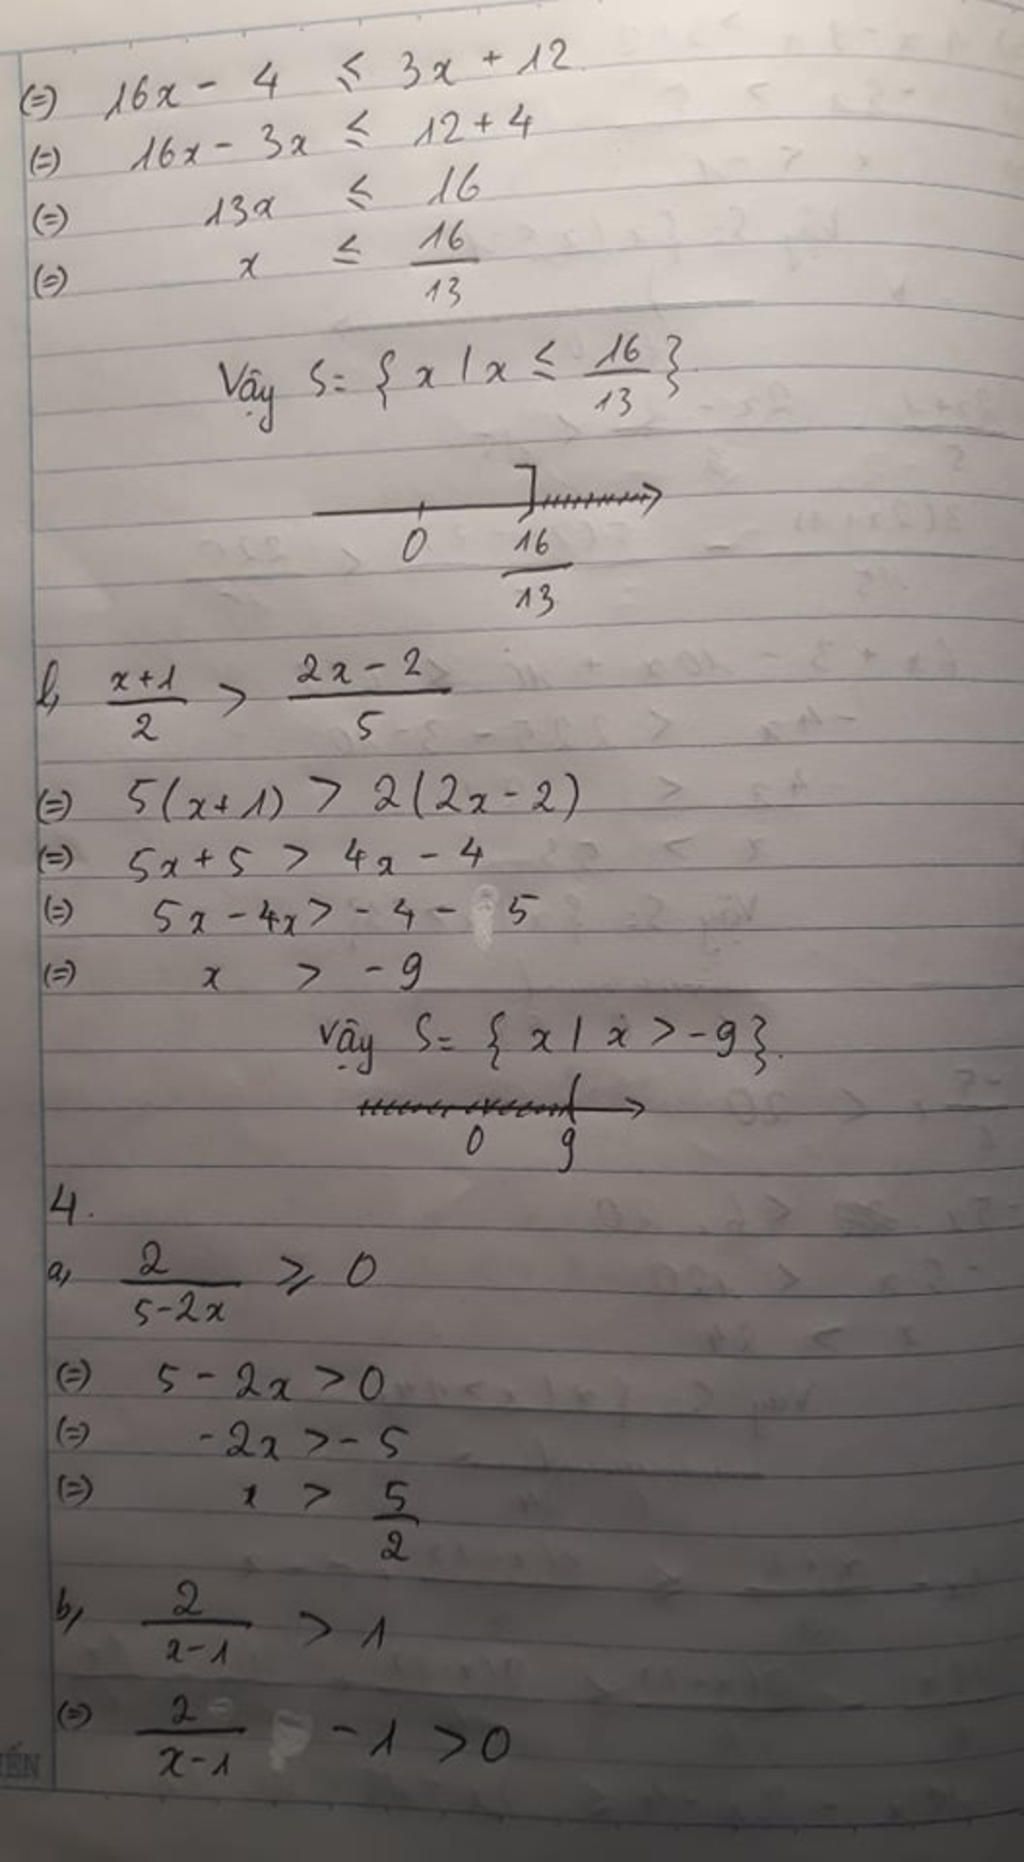 (=) 16x - 4 ≤ 3x + 12
(=) 16x - 3x ≤ 12 + 4
(=) 13x ≤ 16
(=) x ≤ 16/13
Vậy S = { x | x ≤ 16/13 }.
0 16/13
l, (x+1)/2 > (2x-2)/5
(=) 5(x+1) > 2(2x-2)
(=) 5x + 5 > 4x - 4
(=) 5x - 4x > -4 - 5
(=) x > -9
Vậy S = { x | x > -9 }.
0 9
4.
a, 2/(5-2x) ≥ 0
(=) 5 - 2x > 0
(=) -2x > -5
(=) x > 5/2
b, 2/(x-1) > 1
(=) 2/(x-1) - 1 > 0